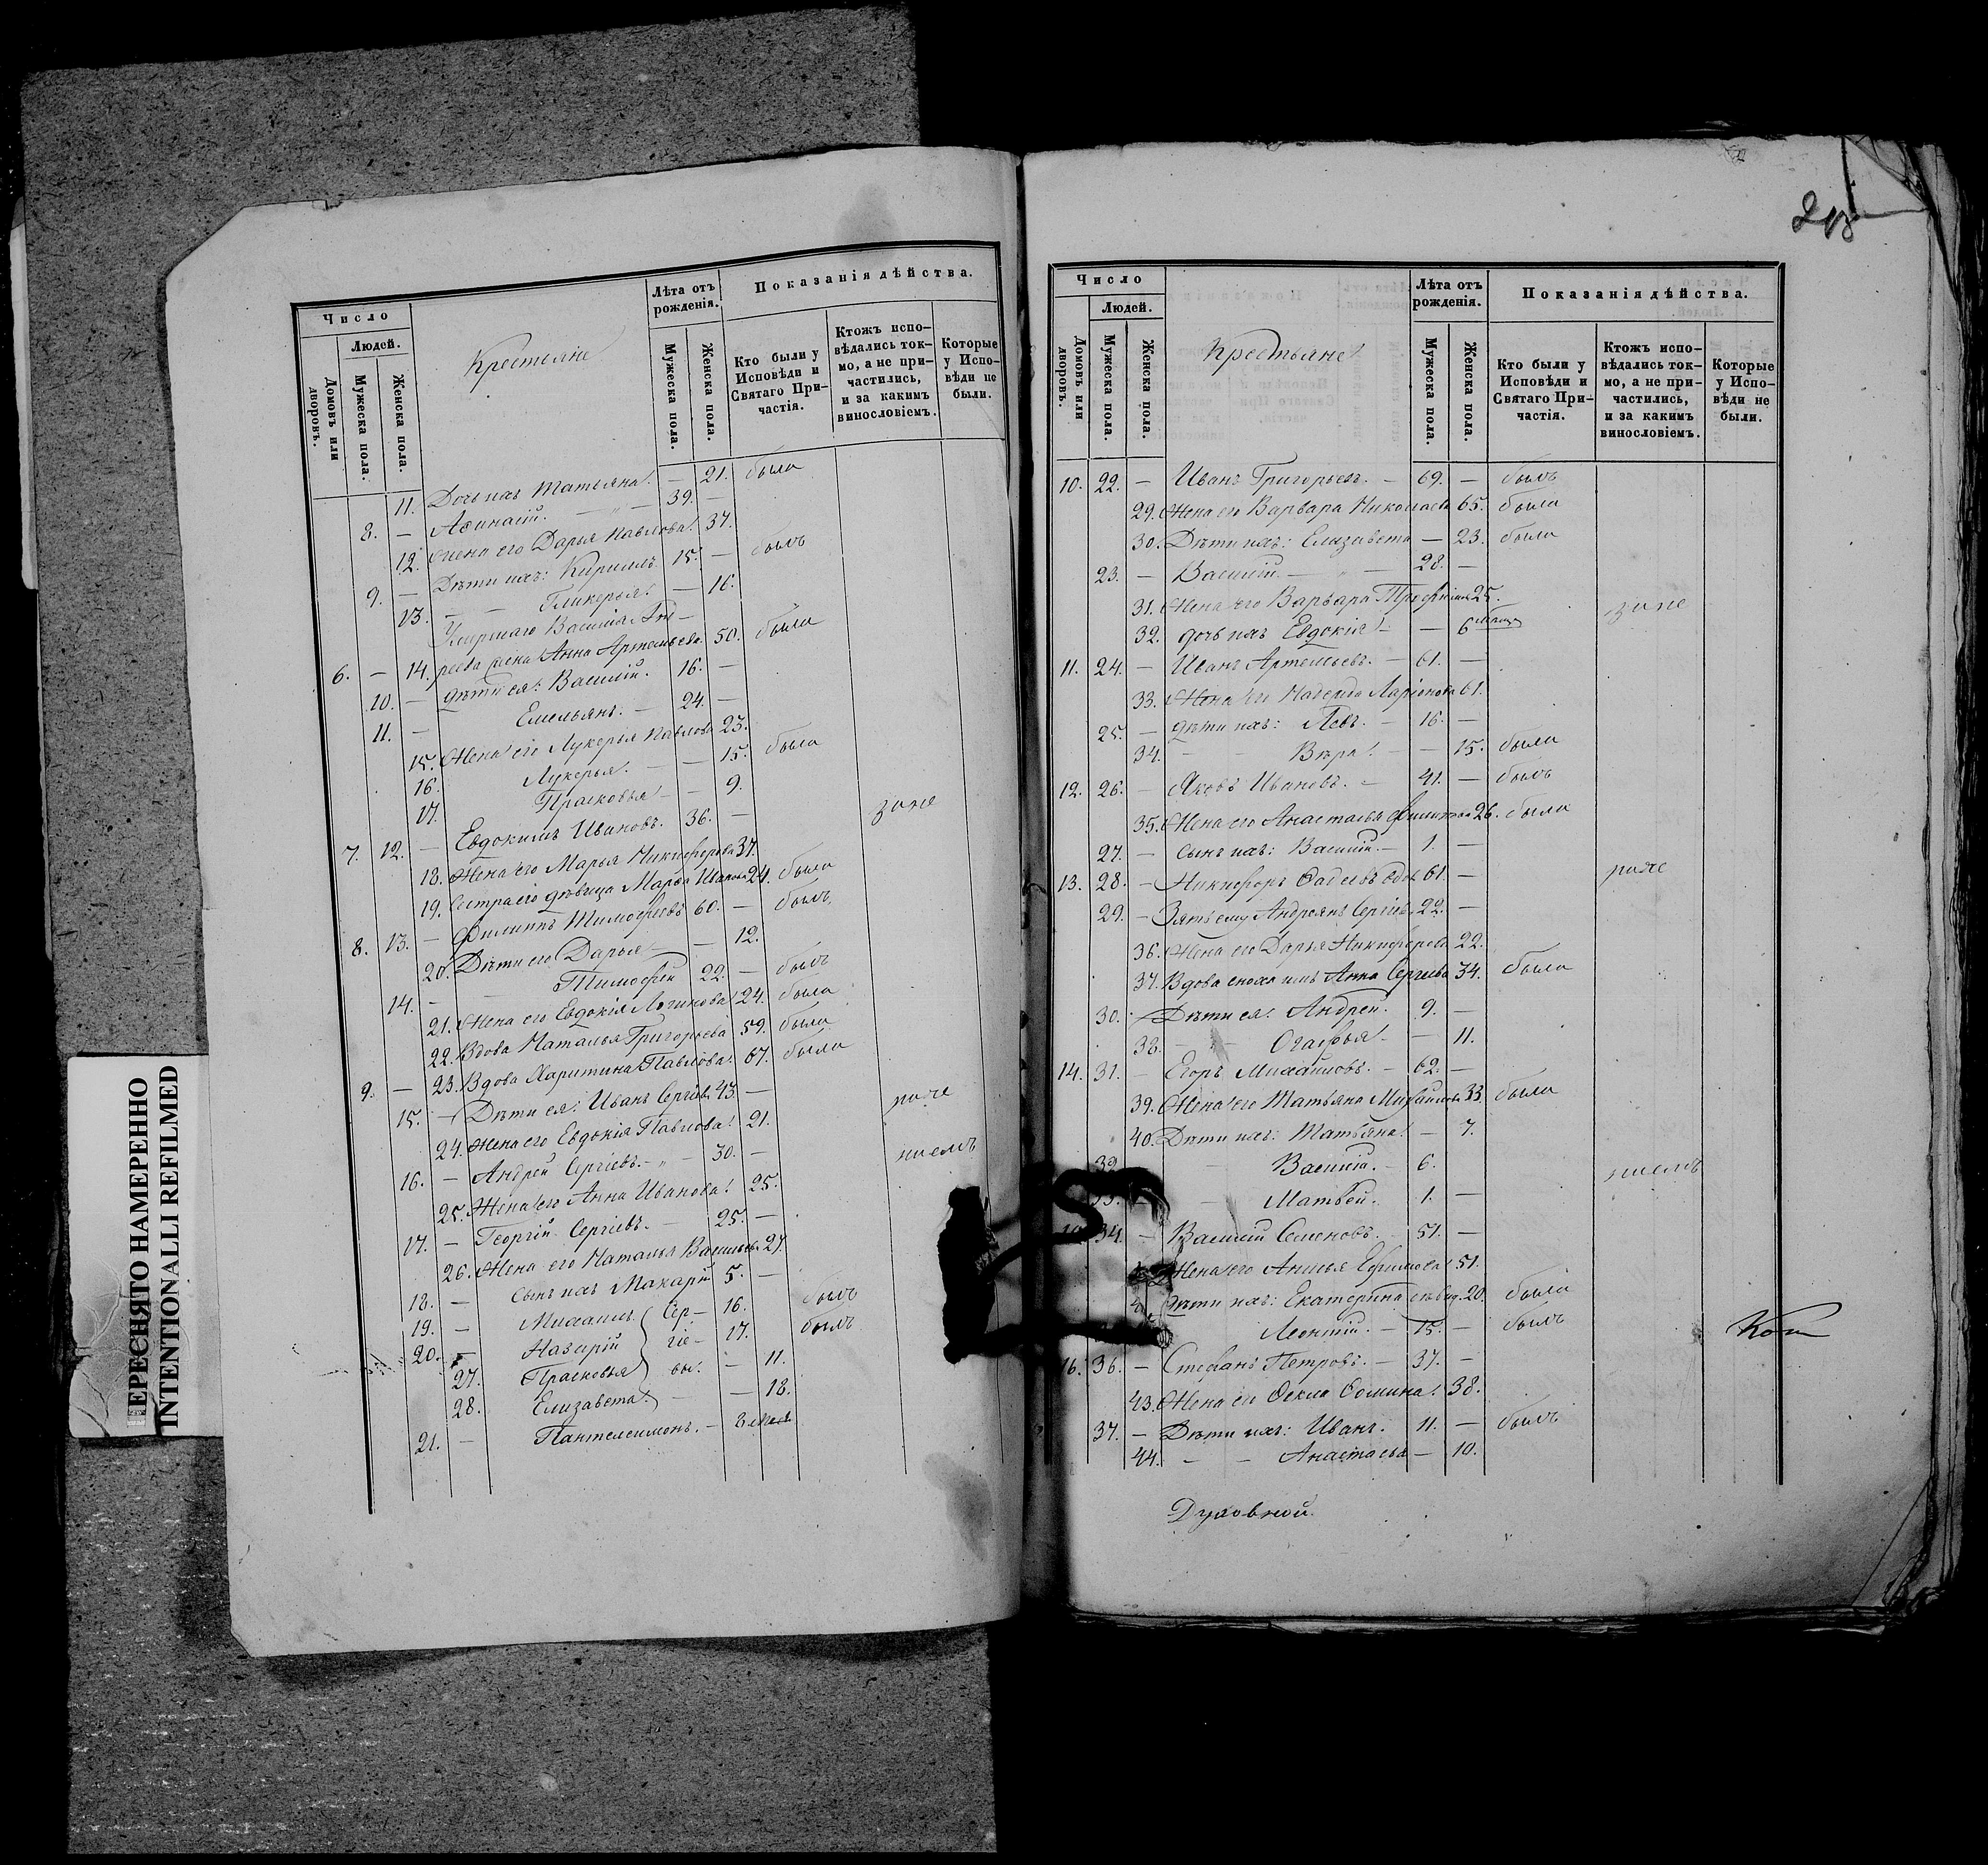 Число
Людей.
Домовъ или дворовъ.
Мужеска пола.
Женска пола.
Крестьяне
Лѣта отъ рожденія.
Мужеска пола.
Женска пола.
Показанія дѣйства.
Кто были у Исповѣди и Святаго Причастія.
Ктожъ исповѣдались токмо, а не причастились, и за какимъ винословіемъ.
Которые у Исповѣди не были.
11. Дочь ихъ Татьяна. — 21. была
8. — Аѳинасій. — 39. —
12. Жена его Дарья Павлова. 37.
9. — Дѣти ихъ: Кириллъ. 15. — былъ
13. — Гликерья. — 16.
Умершаго Василія Анд-
6. — 14. реева жена Анна Артемьева. 50. была
10. — дѣти ея: Василій. 16. —
11. — Емельянъ. — 24. —
15. Жена его Лукерья Павлова 23.
16. Лукерья. — — 15. была
17. Прасковья — — 9.
7. 12. — Евдокимъ Ивановъ. 36. —
18. Жена его Марья Никифорова 37.
19. Сестра его дѣвица Марья Иванова 24. была
8. 13. — Филиппъ Тимофеевъ 60. — былъ
20. Дѣти его Дарья — — 12.
14. — Тимофей 22. — былъ
21. Жена его Евдокія Логинова 24. была
22. Вдова Наталья Григорьева 59. была
9. — 23. Вдова Харитина Павлова. 67. была
15. — Дѣти ея: Иванъ Сергіевъ 43. —
24. Жена его Евдокія Павлова. 21.
16. — Андрей Сергіевъ. — 30. —
25. Жена его Анна Иванова. 25.
17. — Георгій Сергіевъ. — 25. —
26. Жена его Наталья Васильева 27.
18. — Сынъ ихъ Макарій 5. —
19. — Михаилъ Сер- 16. былъ
20. — Назарій гіе- 17. былъ
27. Прасковья вы. — 11.
28. Елизавета — — 18.
21. — Пантелеимонъ. —
Число
Людей.
Домовъ или дворовъ.
Мужеска пола.
Женска пола.
Крестьяне
Лѣта отъ рожденія.
Мужеска пола.
Женска пола.
Показанія дѣйства.
Кто были у Исповѣди и Святаго Причастія.
Ктожъ исповѣдались токмо, а не причастились, и за какимъ винословіемъ.
Которые у Исповѣди не были.
10. 22. — Иванъ Григорьевъ. — 69. — былъ
29. Жена его Варвара Николаева 65. была
30. Дѣти ихъ: Елизавета — 23. была
23. — Василій. — 28. —
31. Жена его Варвара 25.
32. дочь ихъ Евдокія — — 6
11. 24. — Иванъ Артемьевъ. — 61. —
33. Жена его Надежда Ларіонова 61.
25. — дѣти ихъ: Левъ. — 16. —
34. — Вѣра. — — 15. была
12. 26. — Яковъ Ивановъ. — 41. — былъ
35. Жена его Анастасья Филипова 26. была
27. — Сынъ ихъ: Василій. — 1. —
13. 28. — Никифоръ Ѳадеевъ вдов 61. —
29. — Зять ему Андреянъ Сергіевъ 22. —
36. Жена его Дарья Никифорова 22.
37. Вдова сноха имъ Анна Сергіева 34. была
30. — Дѣти ея: Андрей. 9. —
38. — Огафья. — 11.
14. 31. — Егоръ Михайловъ. — 62. —
39. Жена его Татьяна Михайлова 33. была
40. Дѣти ихъ: Татьяна. — 7.
Василій. — 6.
Матвей. 1. —
34. — Василій Семеновъ. 51. —
Жена его Ефимова 51.
Дѣти ихъ: Екатерина дѣвиц. 20. была
Леонтій. — 15. — былъ
16. 36. — Стефанъ Петровъ. — 37. —
43. Жена его Ѳекла Ѳомина. 38.
37. — Дѣти ихъ: Иванъ. 11. — былъ
44. — — Анастасья — 10.
Духовной
ПЕРЕСНЯТО НАМЕРЕННО
INTENTIONALLI REFILMED